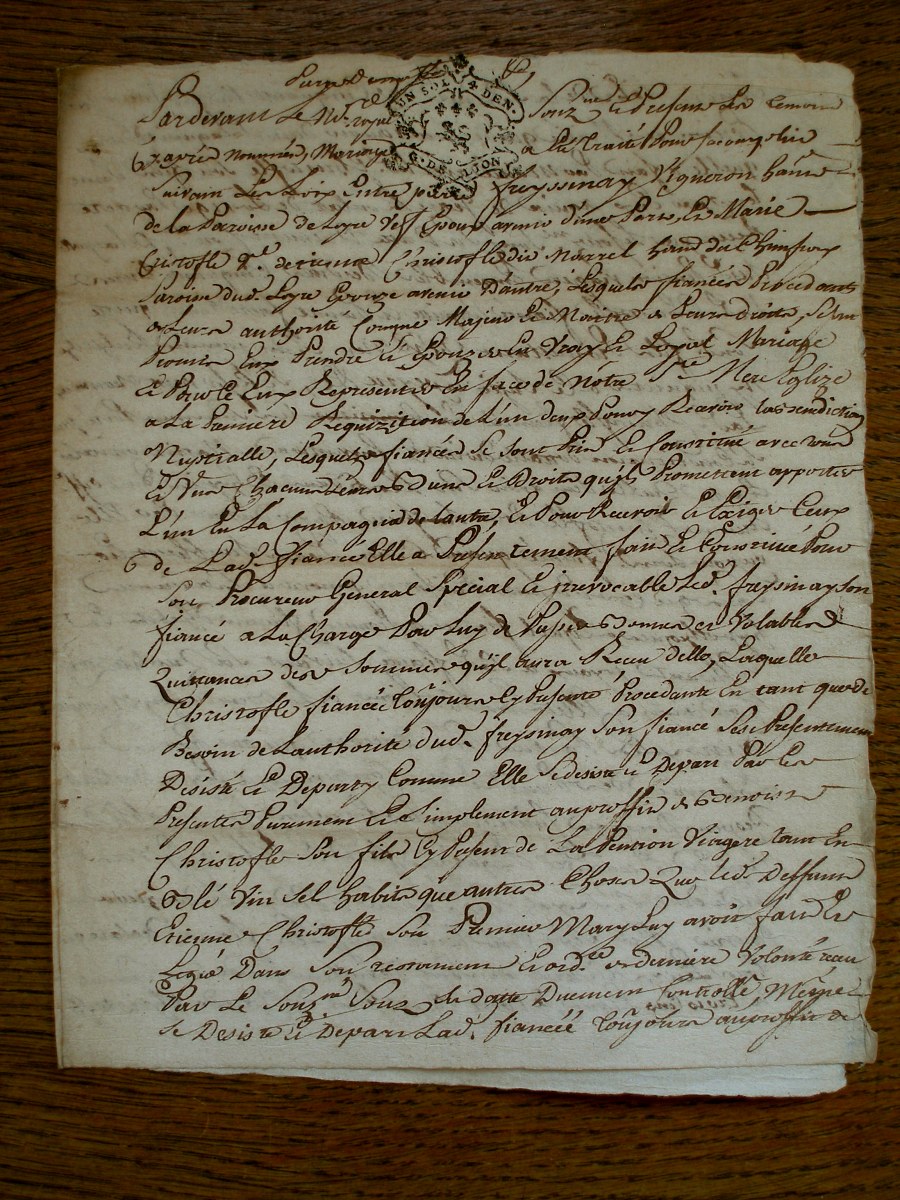 UN SOL 4 DEN.
G. DE LION
Pardevant Le No.re royal Souz.né et Presens Les temoins
Cy apres nommés, Mariage a Eté Traité Pour s'accomplir
Suivant Les Loix Entre pierre freyssinay Vigneron ham.t
de la Paroisse de Loyre Epoux avenir d'une Part, Et Marie
Cristofle V.e de Etienne Christofle dit Marrel
Paroisse dud. Loyre Epouze avenir D'autre, Lesquels fiancés Procedants
de Leurs authorité Comme Majeurs Et Maitre de Leurs droits, se sont
Promis Eux Prendre et Epouzer En Vray Et Loyal Mariage
Et Pour ce Eux Representer En face de Notre S.te Mere Eglize
a La Premiere Requizition de L'un deux Pour y Recevoir La Benediction
Nuptialle, Lesquels fiancés se sont Pris Et Constitué avec tous
Et Uns Chacuns Leurs Biens Et Droits qu'ils Promettent apporter
L'un En La Compagnie de Lautre, Et Pour Recevoir Et Exiger Ceux
de Lad. fiancée Elle a Presentement fait Et Constitué Pour
Son Procureur General Special Et irrevocable Led. freysinay son
fiancé a La Charge Par Luy de Passer Bonnes et Valables
Quittances des Sommes qu'il aura Receu d'elle, Laquelle
Christofle fiancée Toujours Cy Presente Procedante En tant que de
Besoin de Lauthorité dud. freysinay Son fiancé s'est Presentement
Desisté Et Departy Comme Elle se desiste et Depart Par Les
Presentes Purement Et Simplement au proffit de Benoist
Christofle Son fils Cy Present de La Pention Viagere tant En
Blé Vin Sel habits que autres Choses Que Led. Deffunt
Etienne Christofle Son Premier Mary Luy avoit fait Et
Legué Dans Son testament Et ord.ce de derniere Volonté receu
Par Le Souz.né Sous Sa datte Duement Controllé, Même
Se Desiste et Depart Lad. fiancée Toujours au proffit de